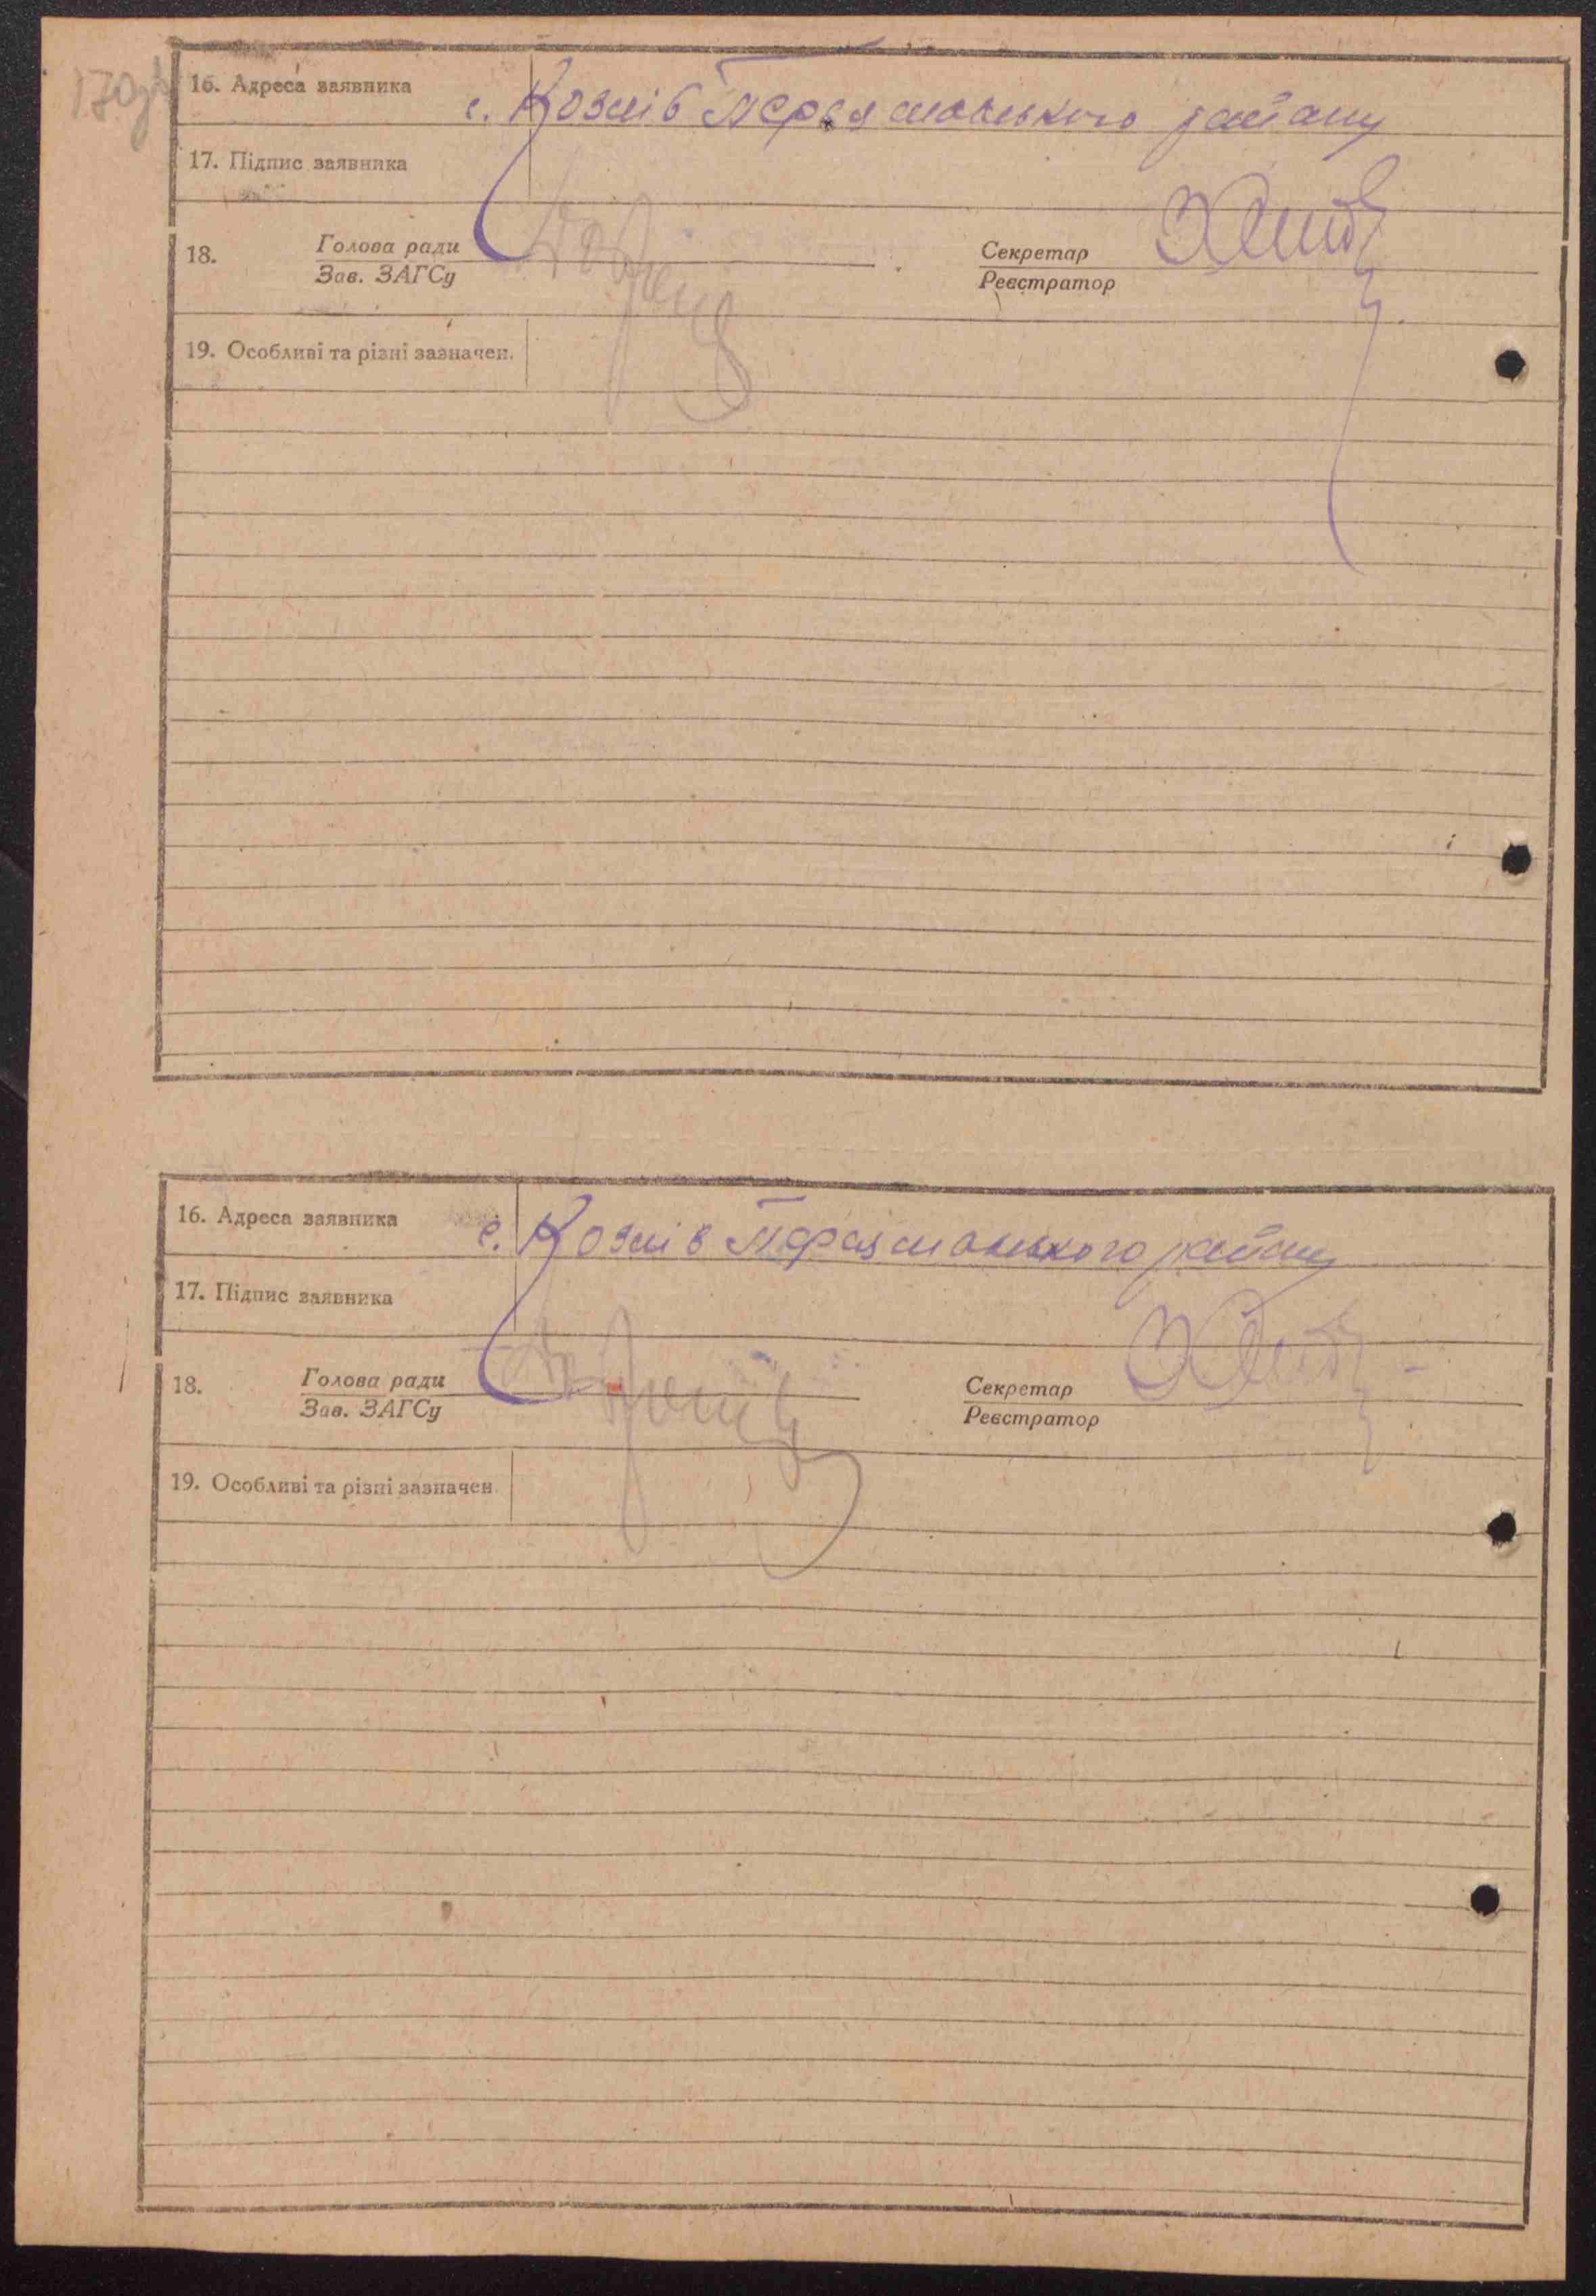 170
16. Адреса заявника с. Козлів Переяславського району
17. Підпис заявника
18. Голова ради Секретар
Зав. ЗАГСу Реєстратор
19. Особливі та різні зазначен.
16. Адреса заявника с. Козлів Переяславського району
17. Підпис заявника
18. Голова ради Секретар
Зав. ЗАГСу Реєстратор
19. Особливі та різні зазначен.